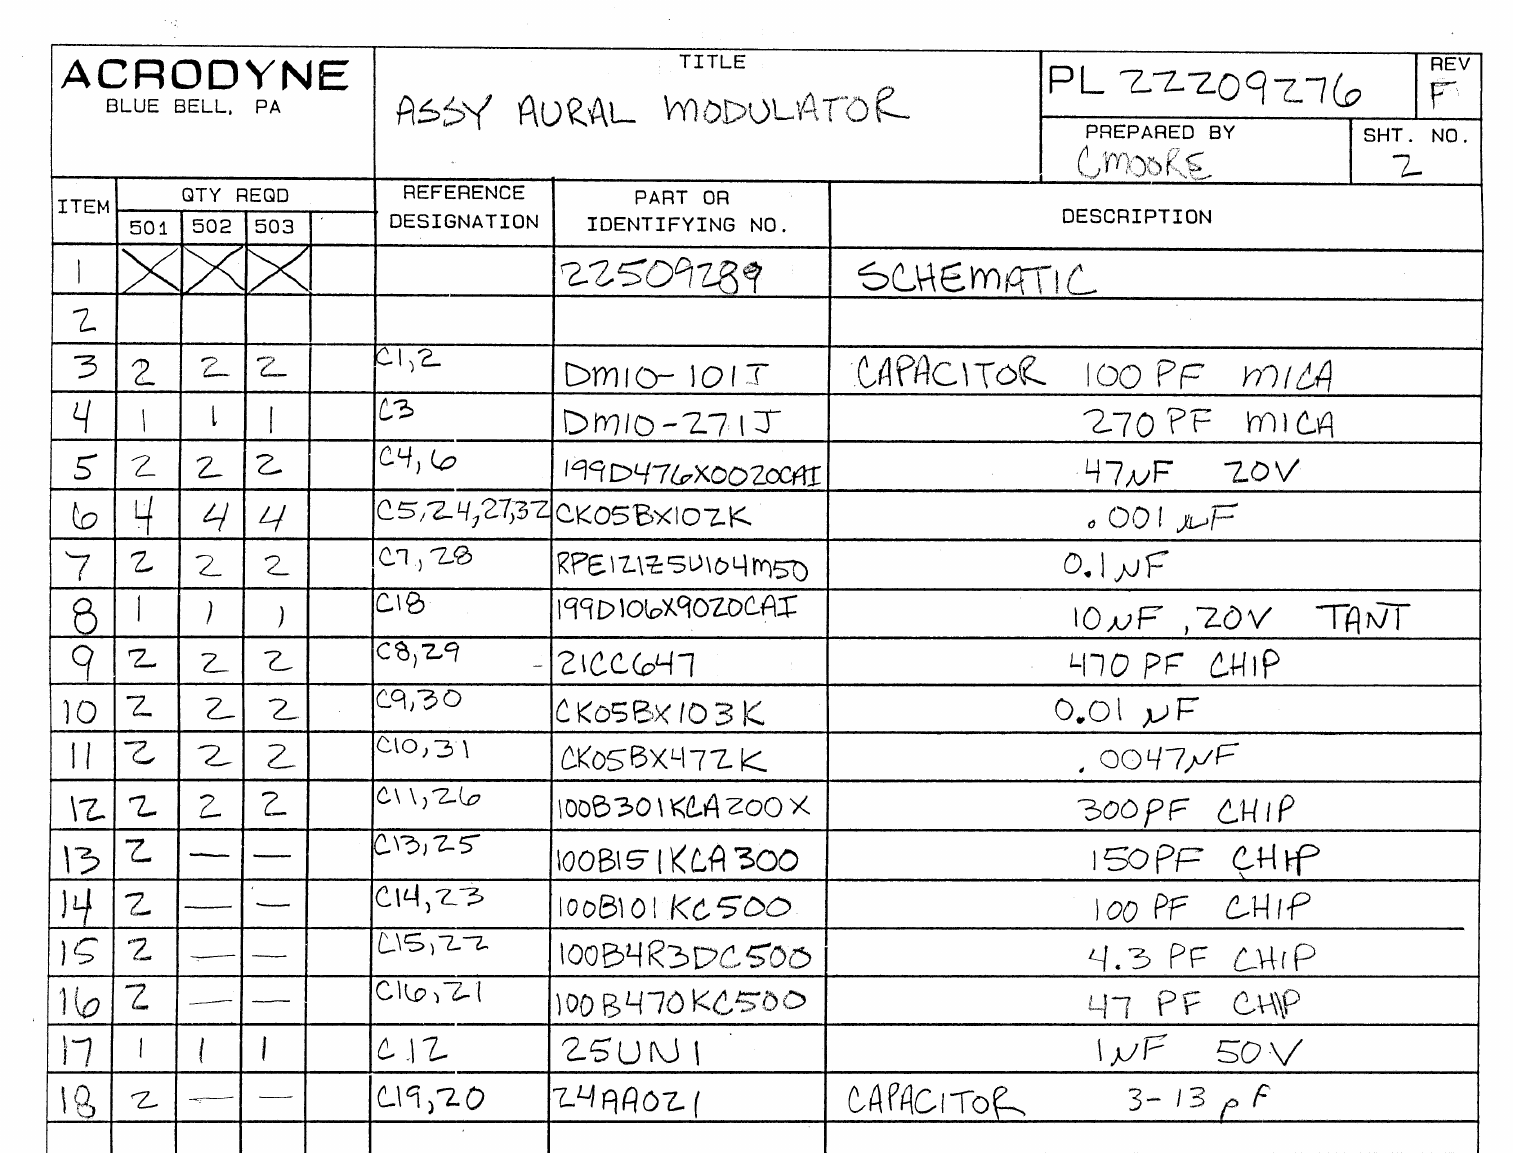 ACRODYNE
BLUE BELL, PA
TITLE
ASSY AURAL MODULATOR
PL 22209276
REV
F
PREPARED BY
CMOORE
SHT. NO.
2
ITEM QTY REQD REFERENCE DESIGNATION PART OR IDENTIFYING NO. DESCRIPTION
501 502 503
1 22509289 SCHEMATIC
2
3 2 2 2 C1,2 DM10-101J CAPACITOR 100 PF MICA
4 1 1 1 C3 DM10-271J 270 PF MICA
5 2 2 2 C4,6 199D476X0020CA1 47µF 20V
6 4 4 4 C5,24,27,32 CK05BX102K .001 µF
7 2 2 2 C7,28 RPE121Z5U104M50 0.1µF
8 1 1 1 C18 199D106X9020CA1 10µF, 20V TANT
9 2 2 2 C8,29 21CC647 470 PF CHIP
10 2 2 2 C9,30 CK05BX103K 0.01 µF
11 2 2 2 C10,31 CK05BX472K .0047µF
12 2 2 2 C11,26 100B301KCA200X 300PF CHIP
13 2 — — C13,25 100B151KCA300 150PF CHIP
14 2 — — C14,23 100B101KC500 100 PF CHIP
15 2 — — C15,22 100B4R3DC500 4.3 PF CHIP
16 2 — — C16,21 100B470KC500 47 PF CHIP
17 1 1 1 C12 25UN1 1µF 50V
18 2 — — C19,20 24AA021 CAPACITOR 3-13 pF